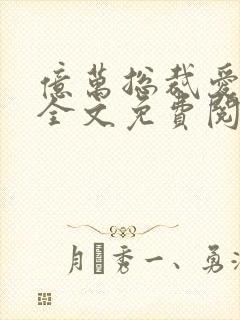 億萬总裁愛
全文免費閱
月秀一、勇